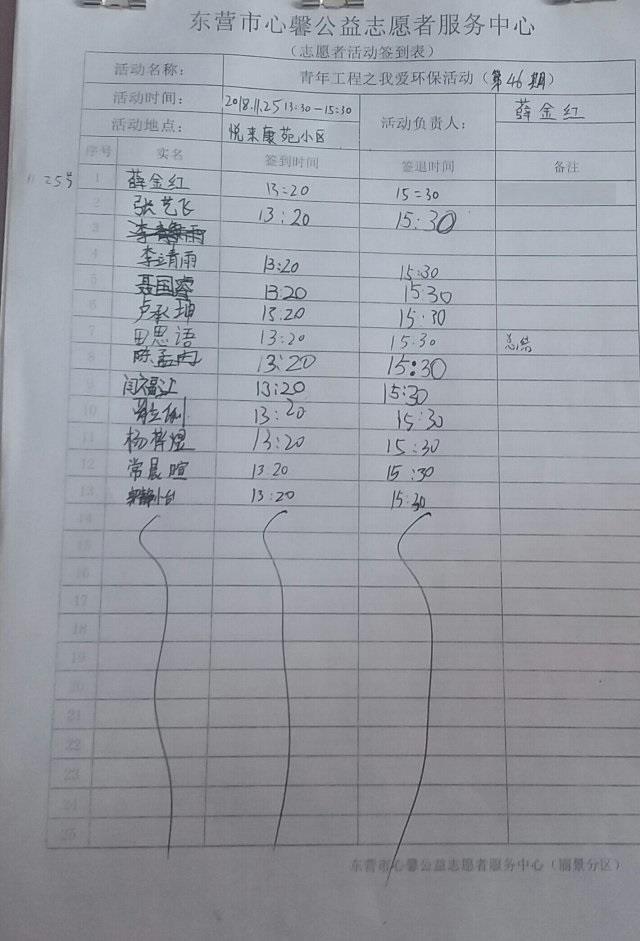 东营市心馨公益志愿者服务中心
（志愿者活动签到表）
活动名称： 青年工程之我爱环保活动（第46期）
活动时间： 2018.11.25 13:30-15:30 活动负责人： 薛金红
活动地点： 悦来康苑小区
序号 实名 签到时间 签退时间 备注
11.25号
1 薛金红 13:20 15:30
2 张艺飞 13:20 15:30
3
4 李靖雨 13:20 15:30
5 聂国睿 13:20 15:30
6 卢承坤 13:20 15:30
7 田思语 13:20 15:30 总结
8 陈孟 13:20 15:30
9 13:20 15:30
10 13:20 15:30
11 杨梓煜 13:20 15:30
12 常晨暄 13 20 15:30
13 13:20 15:30
14
15
16
17
18
19
20
21
22
23
24
25
东营市心馨公益志愿者服务中心（丽景分区）